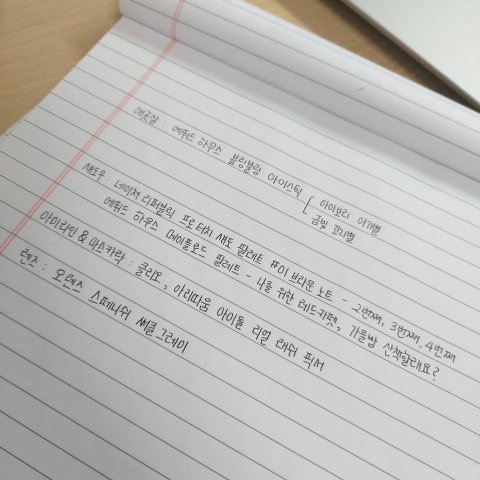 애굣살 : 에뛰드 하우스 블링블링 아이스틱 [ 아이보리 아기별
금빛 꼬리별
섀도우 : 네이처 리퍼블릭 프로터치 섀도 팔레트 #01 브라운 노트 - 2번째, 3번째, 4번째
에뛰드 하우스 메이플로드 팔레트 - 나를 위한 레드카펫, 가을밤 산책할래요?
아이라인 & 마스카라 : 클리오, 아리따움 아이돌 리얼 래쉬 픽서
렌즈 : 오렌즈 스페니쉬 써클 그레이